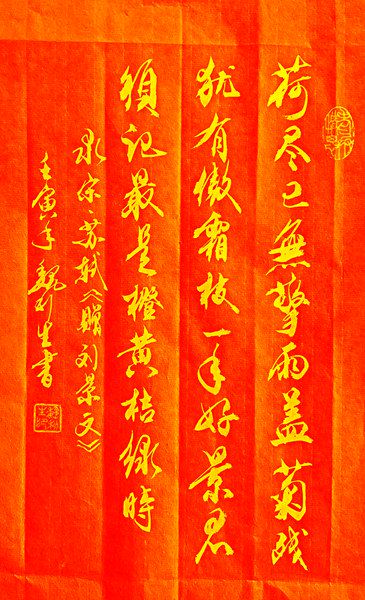 荷尽已無擎雨盖菊残
犹有傲霜枝一年好景君
須记最是橙黄桔绿時
录宋·苏轼《赠刘景文》
壬寅年魏利生書